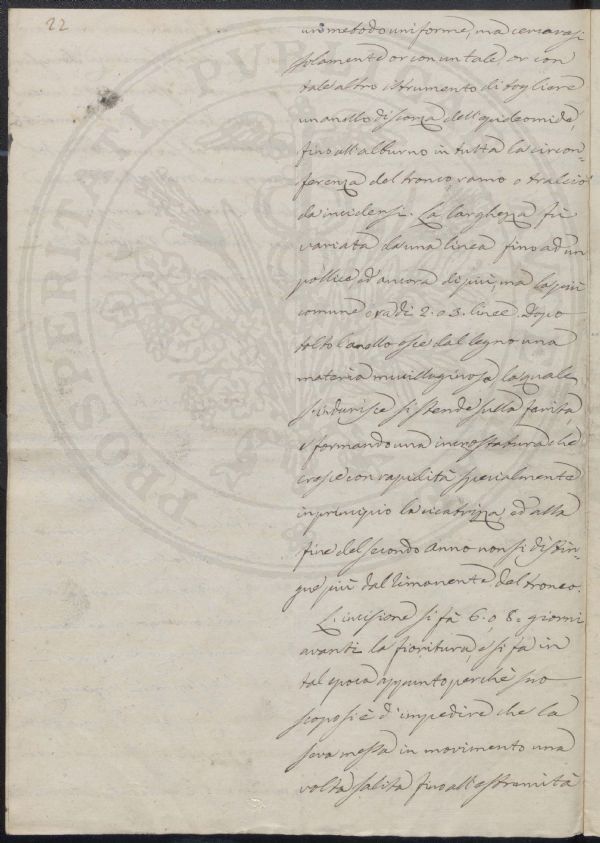 22
un metodo uniforme, ma cercavasi
solamente or con un tale, or con
tale altro strumento di togliere
un anello di scorza dell'epidermide,
fino all'alburno in tutta la circon-
ferenza del tronco, ramo o tralcio
da incidersi. La larghezza fù
variata da una linea fino ad un
pollice ed ancora di più, ma la più
comune era di 2. o 3. linee. Dopo
tolto l'anello esce dal legno una
materia mucillaginosa la quale
s'indurisce si stende sulla ferita,
e formando una incrostatura che
cresce con rapidità specialmente
in principio la cicatrizza, ed alla
fine del secondo Anno non si distin-
gue più dal rimanente del tronco.
L'incisione si fà 6. o 8. giorni
avanti la fioritura, e si fà in
tal epoca appunto perchè suo
scopo si è d'impedire che la
seva messa in movimento una
volta salita fino all'estremità
PROSPERITATI PUBLICAE